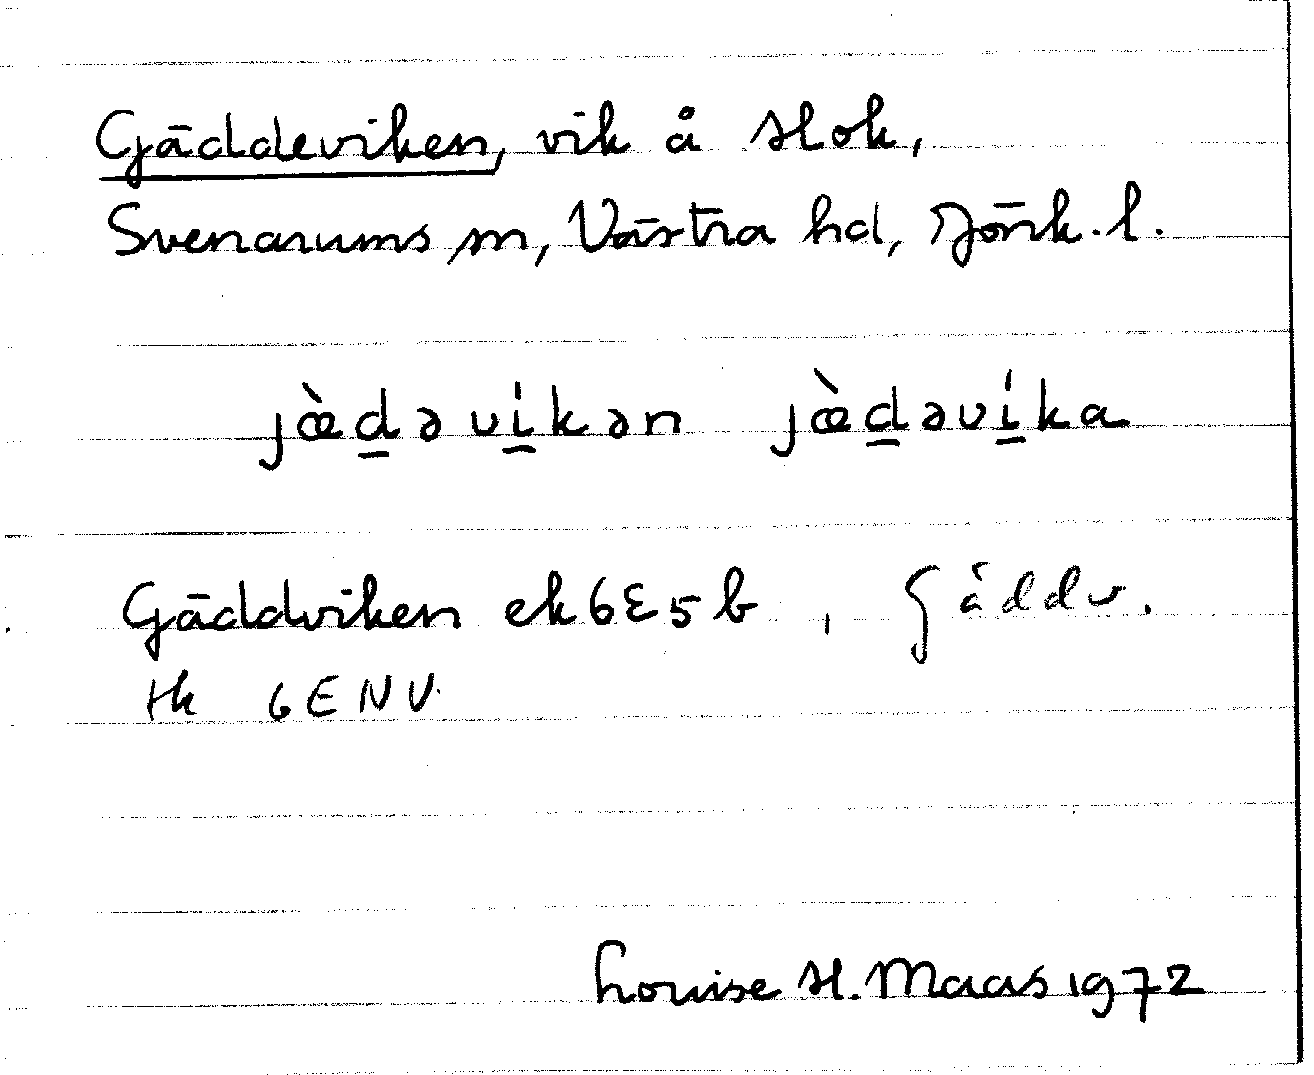 Gäddeviken, vik å Hok,
Svenarums sn, Västra hd, Jönk. l.
jæ̀d̲əvi̲̍kən jæ̀d̲əvi̲̍ka
Gäddviken ek 6E5b, Gäddv.
tk 6E NV.
Louise H. Maas 1972